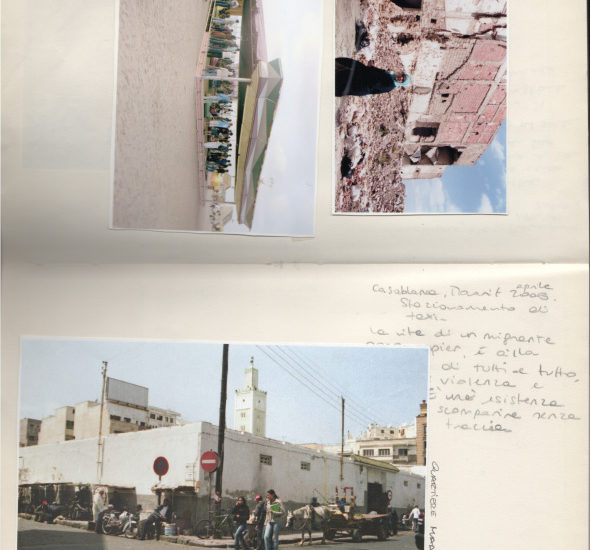 Casablanca,
aprile 2003.
Stazionamento di
taxi.
La vita di un migrante
pier, é alla
di tutti e tutto,
violenza e
una esistenza
scomparire senza
traccia
Quartiere